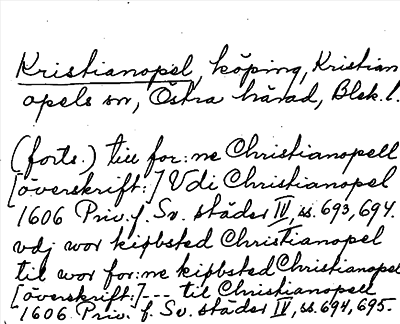 Kristianopel, köping, Kristian
opels sn, Östra härad, Blek. l.
(forts.) till for:ne Christianopell
[överskrift:] Vdi Christianopel
1606 Priv. f. Sv. städer IV, ss. 693, 694.
vdj wor kiøbsted Christianopel
til wor for:ne kiøbsted Christianopel
[överskrift:] --- til Christianopell
1606 Priv. f. Sv. städer IV, ss. 694, 695.